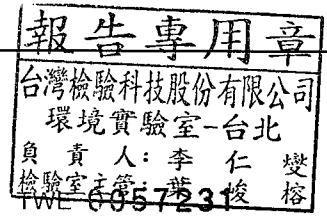 報告專用章
台灣檢驗科技股份有限公司
環境實驗室-台北
負責人：李仁燮
檢驗室主管：葉俊榕
TWE 6057231